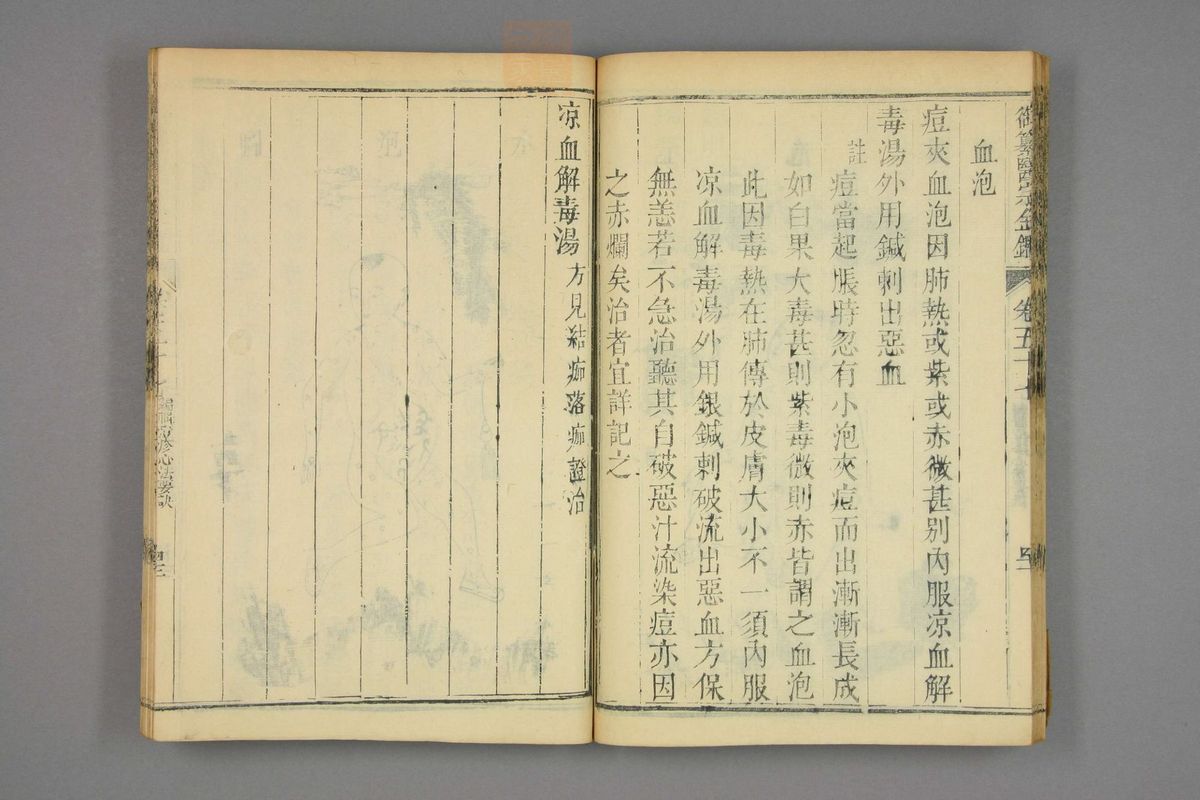 御纂醫宗金鑑 卷五十七
血泡
痘夾血泡因肺熱或紫或赤微甚别內服凉血解
毒湯外用鍼刺出惡血
註痘當起脹時忽有小泡夾痘而出漸漸長成
如白果大毒甚則紫毒微則赤皆謂之血泡
此因毒熱在肺傳於皮膚大小不一須內服
凉血解毒湯外用銀鍼刺破流出惡血方保
無恙若不急治聽其自破惡汁流染痘亦因
之赤爛矣治者宜詳記之
凉血解毒湯 方見結痂落痂證治
痘疹心法要訣